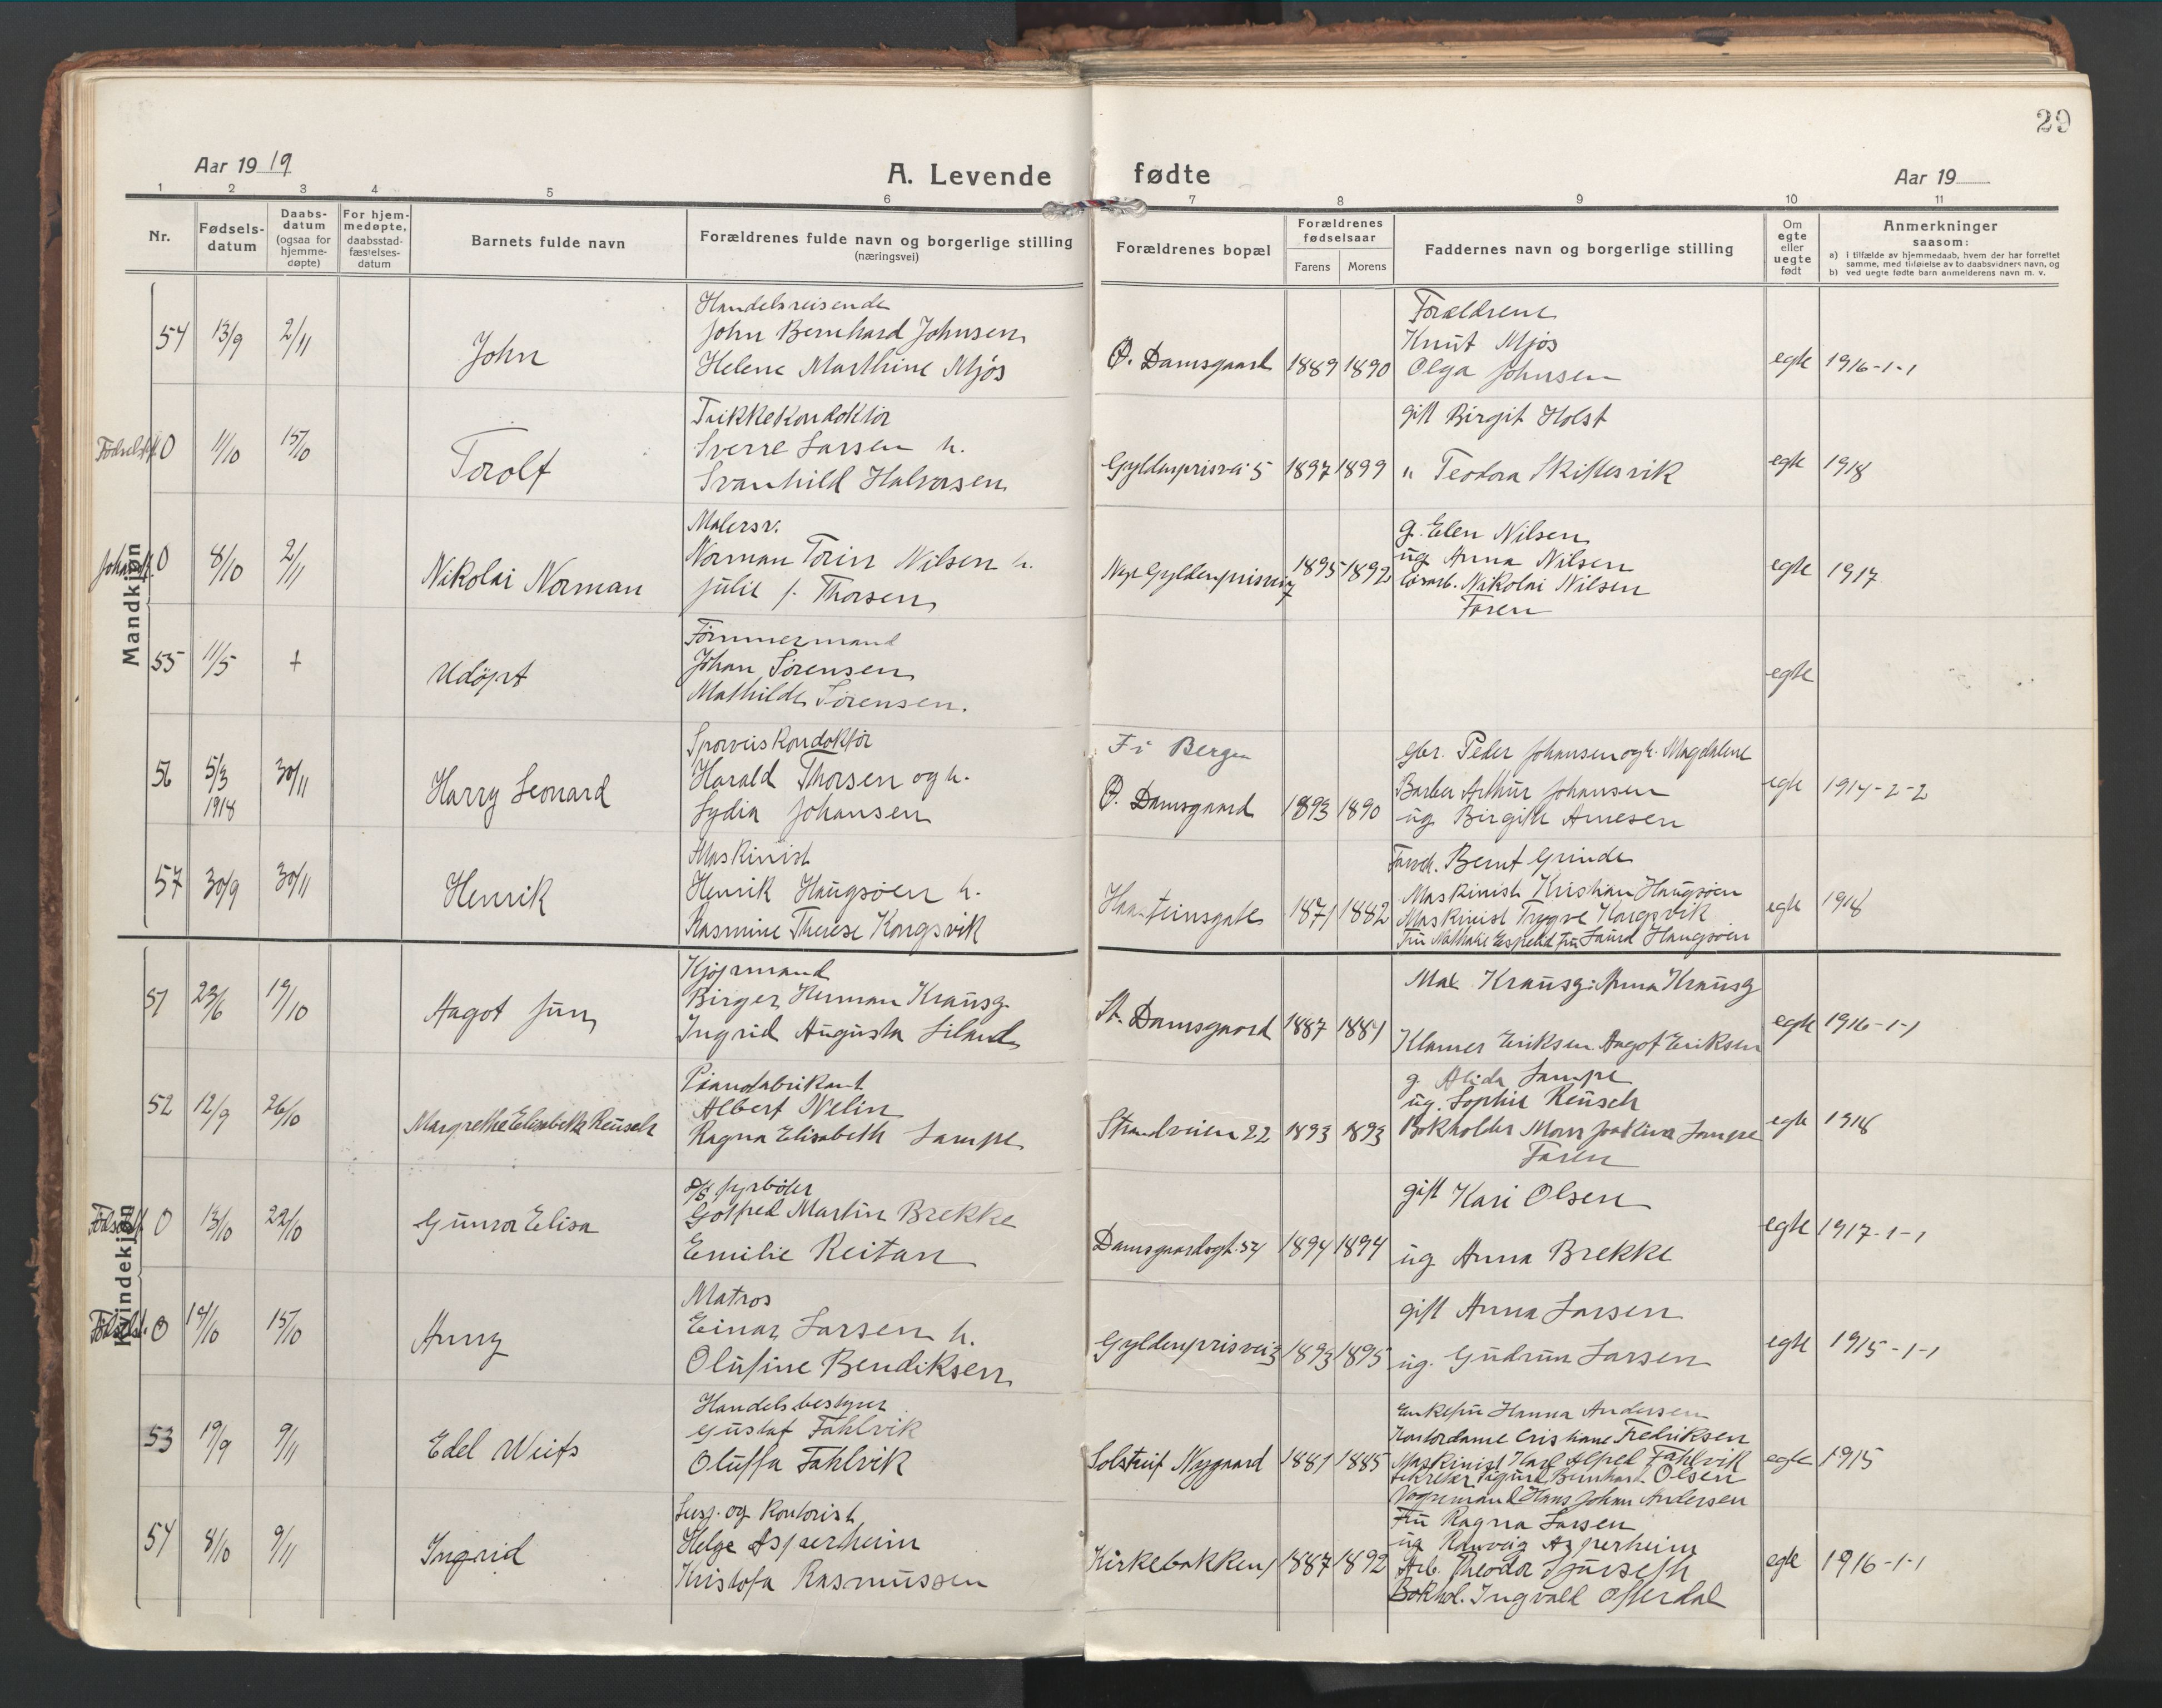 29
Aar 19 19
A. Levende fødte
Aar 19
1 2 3 4 5 6 7 8 9 10 11
Nr.
Fødsels-
datum
Daabs-
datum
(ogsaa for
hjemme-
døpte)
For hjem-
medøpte,
daabsstad-
fæstelses-
datum
Barnets fulde navn
Forældrenes fulde navn og borgerlige stilling
(næringsvei)
Forældrenes bopæl
Forældrenes
fødselsaar
Farens Morens
Faddernes navn og borgerlige stilling
Om
egte
eller
uegte
født
Anmerkninger
saasom:
a) i tilfælde av hjemmedaab, hvem der har forrettet
samme, med tilføielse av to daabsvidners navn, og
b) ved uegte fødte barn anmelderens navn m. v.
Mandkjøn
54 13/9 2/11
John
Handelsreisende
John Bernhard Johnsen
Helene Marthine Mjøs
Ø. Damsgaard 1889 1890
Forældrene
Knut Mjøs
Olga Johnsen
egte 1916-1-1
Fødselsst. 0 11/10 15/10
Torolf
Trikkekonduktør
Sverre Larsen h.
Svanhild Halvorsen
Gyldenprisvei 5 1897 1899
gift Birgit Holst
" Teodora Skiftesvik
egte 1918
0 8/10 2/11
Nikolai Norman
Malersv.
Norman Torin Nilsen h.
Julie f. Thorsen
Nye Gyldenprisvei 7 1895 1892
g. Elen Nilsen
ug Anna Nilsen
Nikolai Nilsen
Faren
egte 1917
55 11/5 +
Udøpt
Tømmermand
Johan Sørensen
Mathilde Sørensen.
egte
56 5/3 1918 30/11
Harry Leonard
Sporveiskonduktør
Harald Thorsen og h.
Lydia Johansen
F i Bergen
Ø. Damsgaard 1893 1890
Peder Johansen og h. Magdalene
Barber Arthur Johansen
ug Birgith Arnesen
egte 1914-2-2
57 30/9 30/11
Henrik
Maskinist
Henrik Haugsøen h.
Rasmine Therese Kongsvik
Haasteinsgate 1871 1882
Bernt Grinde
Maskinist Kristian Haugsøen
Maskinist Trygve Kongsvik
Fru Nathalie Espelid Fru Laura Haugsøen
egte 1918
Kvindekjøn
51 23/6 19/10
Aagot Jun
Kjøpmand
Birger Herman Krausg
Ingrid Augusta Liland
St. Damsgaard 1887 1881
Mal Krausg: Anna Krausg
Klamer Eriksen Aagot Eriksen
egte 1916-1-1
52 12/9 26/10
Margrethe Elisabeth Reusch
Pianofabrikant
Albert Welin
Ragna Elisabeth Lampe
Strandveien 22 1893 1893
g. Alida Lampe
ug. Sophie Reusch
Bokholder Lampe
Faren
egte 1918
Fødselsst. 0 13/10 22/10
Gunvor Elisa
D/S fyrbøter
Gotfred Martin Brekke
Emilie Reitan
Damsgaardsgt. 54 1894 1894
gift Kari Olsen
ug Anna Brekke
egte 1917-1-1
Fødselsst. 0 14/10 15/10
Anny
Matros
Einar Larsen h.
Olufine Bendiksen
Gyldenprisvei 3 1893 1895
gift Anna Larsen
ug. Gudrun Larsen
egte 1915-1-1
53 19/9 9/11
Edel Weifs
Handelsbestyrer
Gustaf Fahlvik
Oluffa Fahlvik
Solstreif Nygaard 1881 1885
Enkefru Hanna Andersen
Kontordame Cristiane Fredriksen
Maskinist Karl Alfred Fahlvik
Sekretær Sigurd Bernhard Olsen
Vognmand Hans Johan Andersen
egte 1915
54 8/10 9/11
Ingrid
Lusp. og Kontorist
Helge Asperheim
Kristofa Rasmussen
Kirkebakken 1 1887 1892
Fru Ragna Larsen
ug Ranveig Asperheim
Arb. Theodor Sjurseth
Bokhol. Ingvald Osterdal
egte 1916-1-1